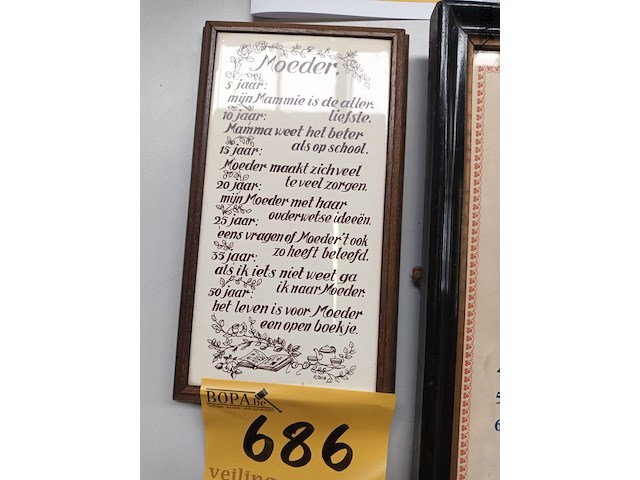 Moeder.
5 jaar:
mijn Mammie is de aller
liefste.
10 jaar:
Mamma weet het beter
als op school.
15 jaar:
Moeder maakt zich veel
te veel zorgen.
20 jaar:
mijn Moeder met haar
ouderwetse ideeën.
25 jaar:
eens vragen of Moeder 't ook
zo heeft beleefd.
35 jaar:
als ik iets niet weet ga
ik naar Moeder.
50 jaar:
het leven is voor Moeder
een open boekje.
BOPA.be
686
veiling